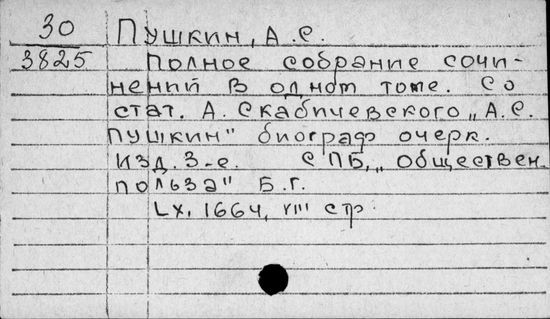 30 Пушкин, А.С.
3825 Полное собрание сочи-
нений в одном томе. Со
стат. А. Скабичевского „А.С.
Пушкин" биограф очерк.
Изд. 3-е. СПБ, „Обществен.
польза" Б.г.
LX, 1664, VIII стр.